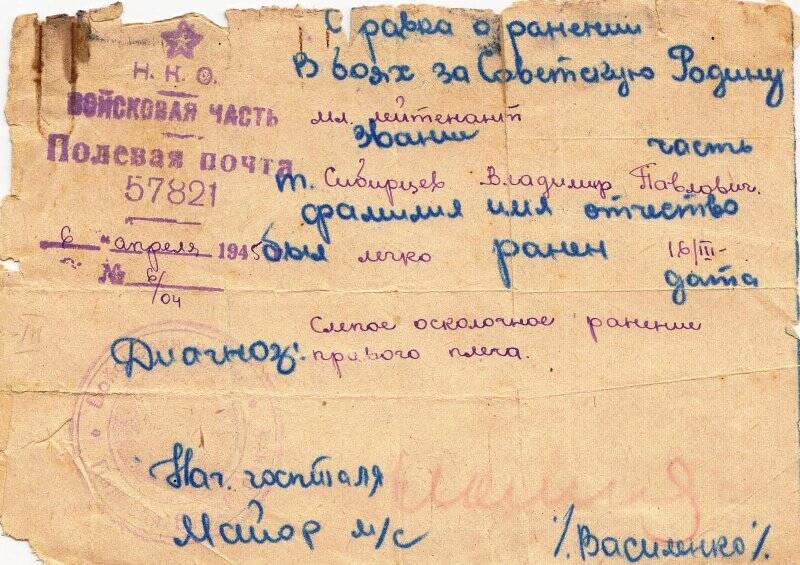 Справка о ранении
В боях за Советскую Родину
Н. К. О.
ВОЙСКОВАЯ ЧАСТЬ
Полевая почта
57821
6 " апреля 1945
№ 6/04
мл. лейтенант
звание часть
т. Сибирцев Владимир Павлович.
фамилия имя отчество
был легко ранен 16/III-
дата
Диагноз: Слепое осколочное ранение
правого плеча.
Нач. госпиталя
Майор м/с /. Василенко /.